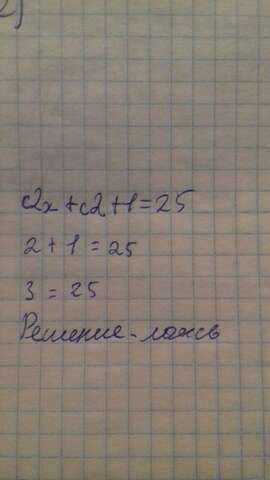 2)
2x + 2 + 1 = 25
2 + 1 = 25
3 = 25
Решение - ложь